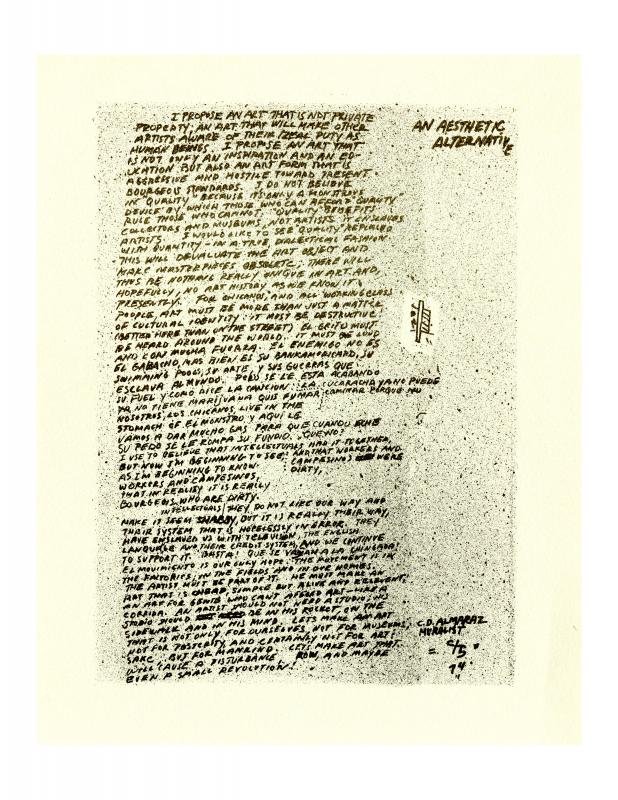 AN AESTHETIC
ALTERNATIVE
I PROPOSE AN ART THAT IS NOT PRIVATE
PROPERTY; AN ART THAT WILL MAKE OTHER
ARTISTS AWARE OF THEIR REAL DUTY AS
HUMAN BEINGS. I PROPOSE AN ART THAT
IS NOT ONLY AN INSPIRATION AND AN ED-
UCATION BUT ALSO AN ART FORM THAT IS
AGGRESSIVE AND HOSTILE TOWARD PRESENT
BOURGEOIS STANDARDS. I DO NOT BELIEVE
IN QUALITY BECAUSE IT'S ONLY A MONSTROUS
DEVICE BY WHICH THOSE WHO CAN AFFORD "QUALITY"
RULE THOSE WHO CANNOT. "QUALITY" BENEFITS
COLLECTORS AND MUSEUMS, NOT ARTISTS. IT ENSLAVES
ARTISTS. I WOULD LIKE TO SEE QUALITY REPLACED
WITH QUANTITY - IN A TRUE DIALECTICAL FASHION.
THIS WILL DEVALUATE THE ART OBJECT AND
MAKE MASTERPIECES OBSOLETE. THERE WILL
THUS BE NOTHING REALLY UNIQUE IN ART AND,
HOPEFULLY, NO ART HISTORY AS WE KNOW IT
PRESENTLY. FOR CHICANOS, AND ALL WORKING CLASS
PEOPLE, ART MUST BE MORE THAN JUST A MATTER
OF CULTURAL IDENTITY: IT MUST BE DESTRUCTIVE!
(BETTER HERE THAN ON THE STREET) EL GRITO MUST
BE HEARD AROUND THE WORLD. IT MUST BE LOUD
AND CON MUCHA FUERRA. EL ENEMIGO NO ES
EL GABACHO, MAS BIEN ES SU BANKAMERICARD, SU
SWIMMING POOL, SU ARTE, Y SUS GUERRAS QUE
ESCLAVA AL MUNDO. PERO SE LE ESTA ACABANDO
SU FUEL Y COMO DICE LA CANCION: LA CUCARACHA YA NO PUEDE
CAMINAR PORQUE NO
YA NO TIENE MARIJUANA QUE FUMAR.
NOSOTROS, LOS CHICANOS, LIVE IN THE
STOMACH OF EL MONSTRO Y AQUI LE
VAMOS A DAR MUCHO GAS PARA QUE CUANDO ECHE
SU PEDO SE LE ROMPA SU FUNDIO. ¿QUE NO?
I USE TO BELIEVE THAT INTELLECTUALS HAD IT TOGETHER,
AND THAT WORKERS AND
CAMPESINOS WERE
DIRTY,
BUT NOW I'M BEGINNING TO SEE;
AS I'M BEGINNING TO KNOW
WORKERS AND CAMPESINOS,
THAT IN REALITY IT IS REALLY
BOURGEOIS WHO ARE DIRTY.
INTELLECTUALS THEY DO NOT LIKE OUR WAY AND
MAKE IT SEEM SHABBY, BUT IT IS REALLY THEIR WAY,
THEIR SYSTEM THAT IS HOPELESSLY IN ERROR. THEY
HAVE ENSLAVED US WITH TELEVISION, THE ENGLISH
LANGUAGE AND THEIR CREDIT SYSTEM, AND WE CONTINUE
TO SUPPORT IT. BASTA! QUE SE VAYAN A LA CHINGADA!
EL MOVIMIENTO IS OUR ONLY HOPE. THE MOVEMENT IS IN
THE FACTORIES, IN THE FIELDS AND IN OUR HOMES.
THE ARTIST MUST BE PART OF IT. HE MUST MAKE AN
ART THAT IS CHEAP, SIMPLE BUT ALIVE AND RELEVENT!
AN ART FOR GENTE WHO CAN'T AFFORD ART - LIKE A
CORRIDO. AN ARTIST WOULD NOT NEED A STUDIO; HIS
STUDIO SHOULD BE IN HIS POCKET, ON THE
SIDEWALK AND IN HIS MIND. LETS MAKE AN ART
THAT IS NOT ONLY FOR OURSELVES, NOT FOR MUSEUMS,
NOT FOR POSTERITY AND CERTAINLY NOT FOR ART'S
SAKE BUT FOR MANKIND. LETS MAKE ART THAT
WILL CAUSE A DISTURBANCE, ROW, AND MAYBE
EVEN A SMALL REVOLUTION!
C.D. ALMARAZ
MURALIST
C/S
74